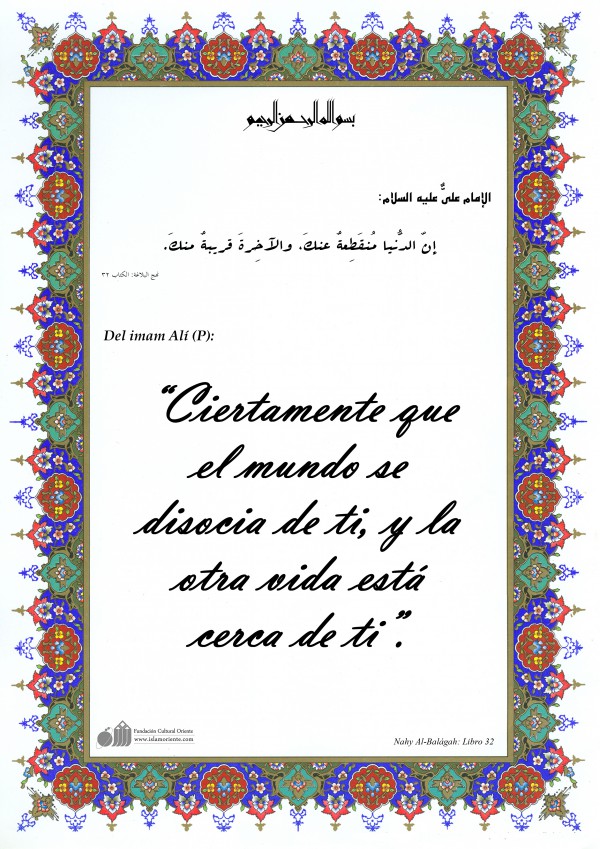 بسم الله الرحمن الرحيم
الإمام عليٌّ عليه السلام:
إنّ الدُّنيا مُنقَطِعةٌ عنكَ، والآخِرةَ قريبةٌ منكَ.
نهج البلاغة: الكتاب ٣٢
Del imam Alí (P):
“Ciertamente que
el mundo se
disocia de ti, y la
otra vida está
cerca de ti”.
Fundación Cultural Oriente
www.islamoriente.com
Nahy Al-Balágah: Libro 32